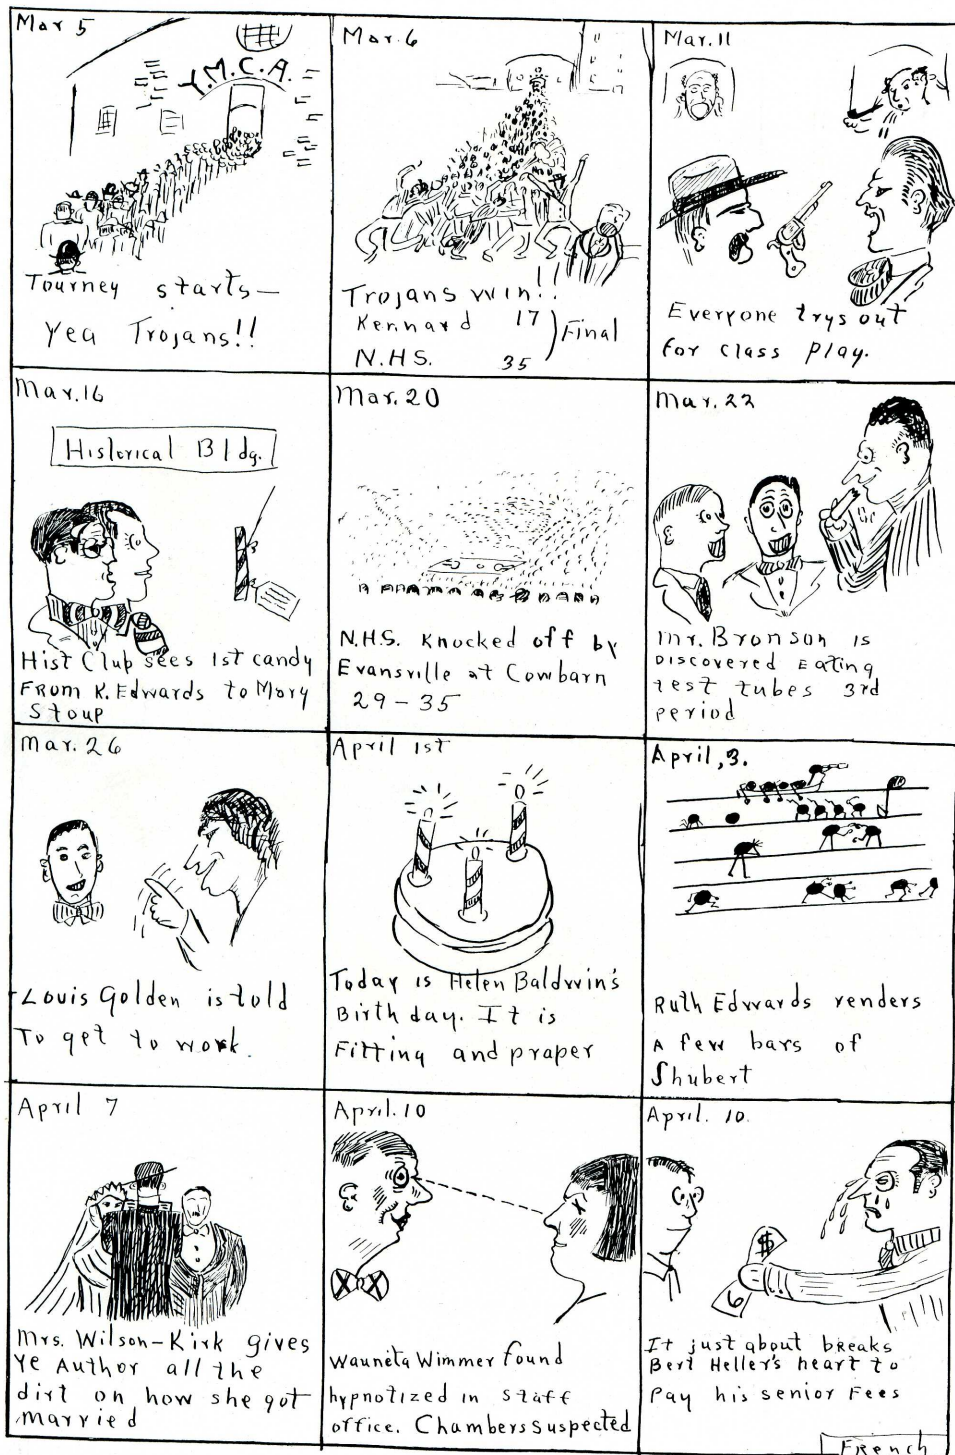 Mar 5
Y.M.C.A.
Tourney starts—
Yea Trojans!!
Mar. 6
Trojans win!!
Kennard 17
N.H.S. 35
Final
Mar. 11
Everyone trys out
for class play.
Mar. 16
Historical Bldg.
Hist Club sees 1st candy
From K. Edwards to Mary
Stoup
Mar. 20
N.H.S. Knocked off by
Evansville at Cowbarn
29-35
Mar. 22
Mr. Bronson is
Discovered Eating
test tubes 3rd
period
Mar. 26
Louis Golden is told
To get to work.
April 1st
Today is Helen Baldwin's
Birthday. It is
Fitting and praper
April, 3.
Ruth Edwards renders
A few bars of
Shubert
April 7
Mrs. Wilson-Kirk gives
Ye Author all the
dirt on how she got
married
April. 10
Wauneta Wimmer found
hypnotized in staff
office. Chambers suspected
April. 10.
$
6
It just about breaks
Bert Heller's heart to
Pay his senior Fees
French